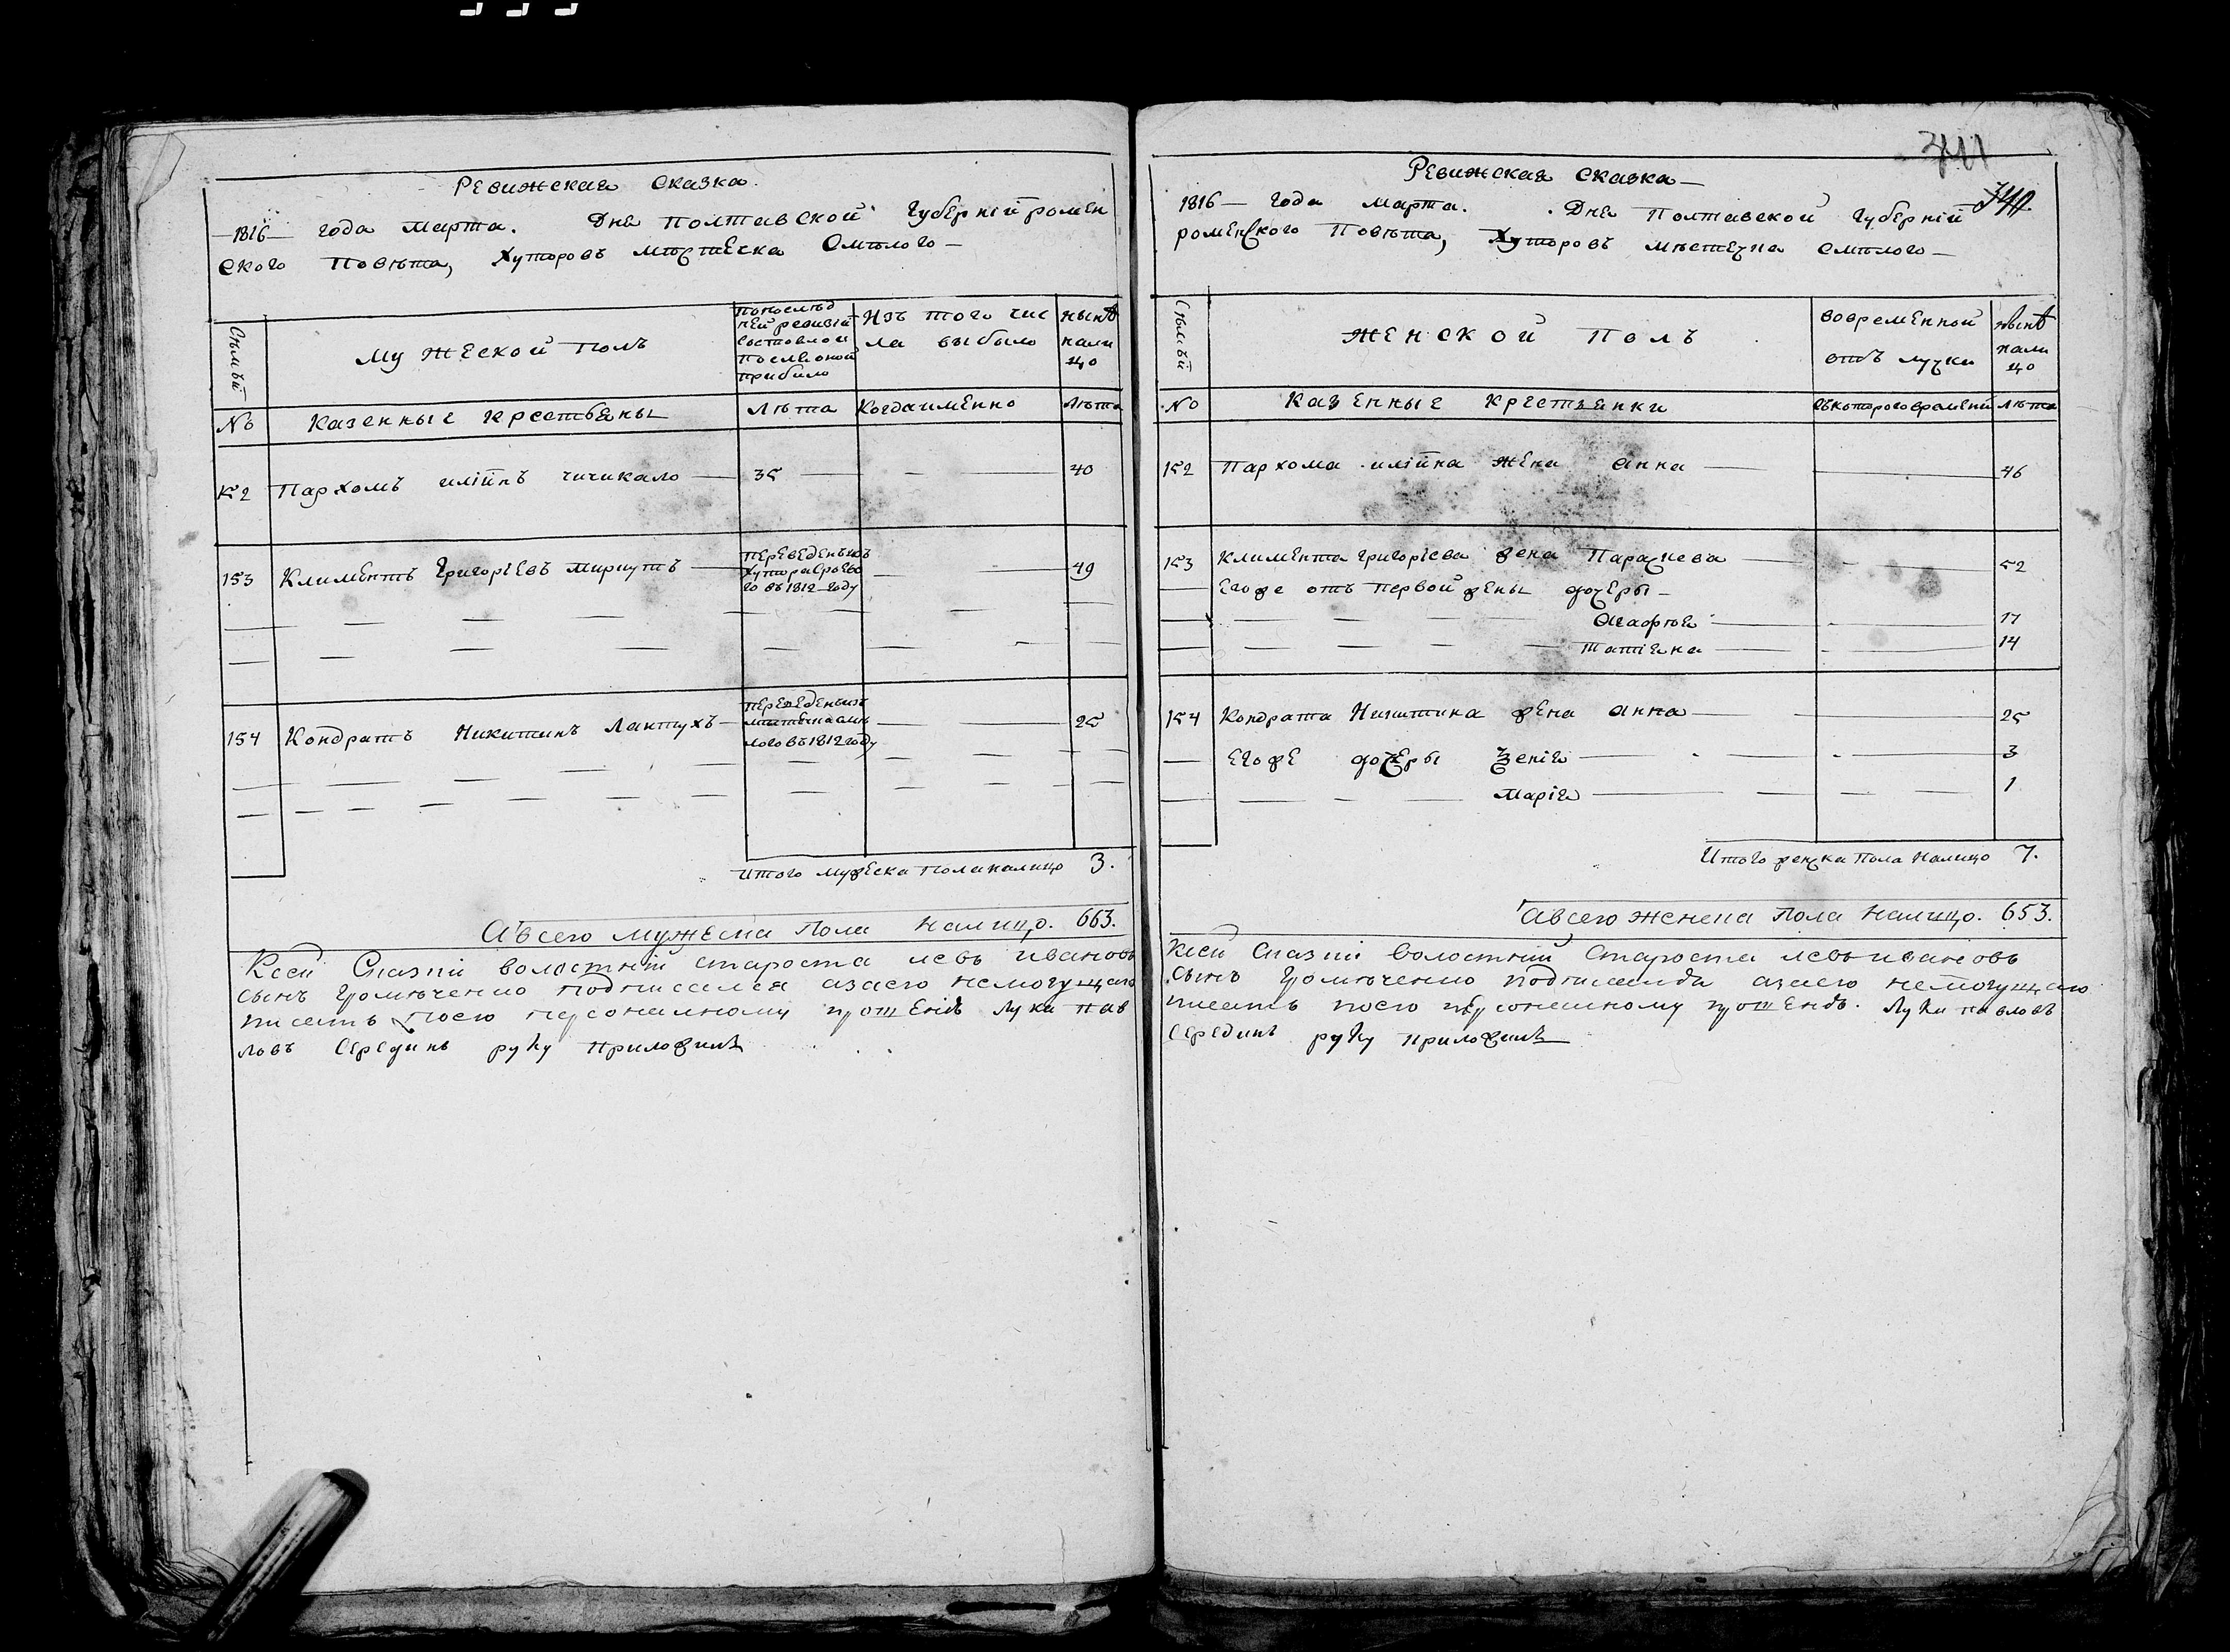 Ревижская сказка.
1816 года марта. Дня Полтавской Губерній ромен
ского Повѣта, Хуторовъ мѣстечка Смѣлого
Сѣмьи
Мужеской Полъ
По послѣд
ней ревизіи
состояло и
после оной
прибило
Изъ того чис
ла выбыло
нынѣ
нали
цо
№
Казенные крестьяны
Лѣта
Когда именно
Лѣта
152
Пархомъ иліинъ чичикало
35
40
153
Климентъ Григоріевъ миргутъ
Переведенъ изъ
хутора
го въ 1812 году
49
154
Кондратъ Никитинъ Лантухъ
Переведенъ изъ
лого въ 1812 году
25
Итого мужеска пола налицо 3.
А всего мужеска Пола налицо. 663.
Ксей Сказкі волостній староста левъ ивановъ
сынъ подписался азаего немогущаго
писать поего персоналному прошению Луки Пав
ловъ Серединъ руку приложилъ
341
340
Ревижская сказка
1816 года марта. Дня Полтавской Губерній
роменского Повѣта, Хуторовъ мѣстечка смѣлого
Сѣмьи
Женской Полъ
Вовременной
отълучки
нынѣ
нали
цо
№
Казенные крестьянки
Съкоторого времени
лѣта
152
Пархома иліина жена анна
46
153
Климента григоріева жена Параскева
52
Егоже отъ первой жены дочеры
Агафія
17
татіяна
14
154
Кондрата Никитина жена анна
25
Егоже дочеры Зенія
3
Марія
1
Итого женска Пола налицо 7.
Авсего женска Пола налицо. 653.
Ксей Сказкі волостній староста левъ ивановъ
сынъ азаего немогущаго
писать поего персоналному Луки павловъ
Серединъ руку приложилъ